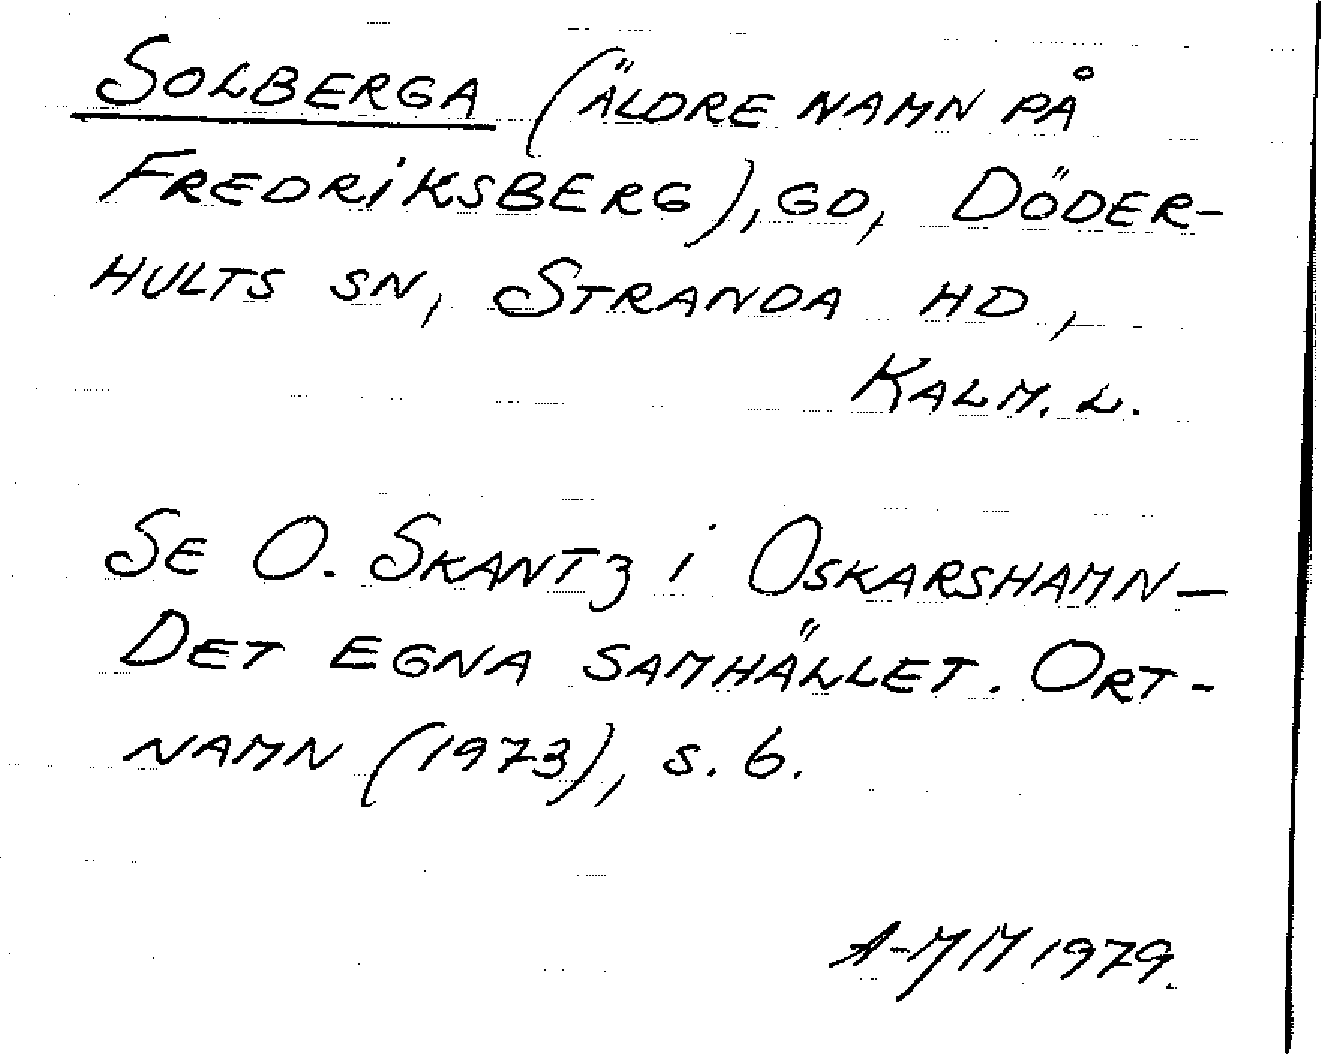 SOLBERGA (ÄLDRE NAMN PÅ
FREDRIKSBERG), GD, DÖDER-
HULTS SN, STRANDA HD,
KALM. L.
SE O. SKANTZ I OSKARSHAMN–
DET EGNA SAMHÄLLET. ORT-
NAMN (1973), S. 6.
A-MM 1979.